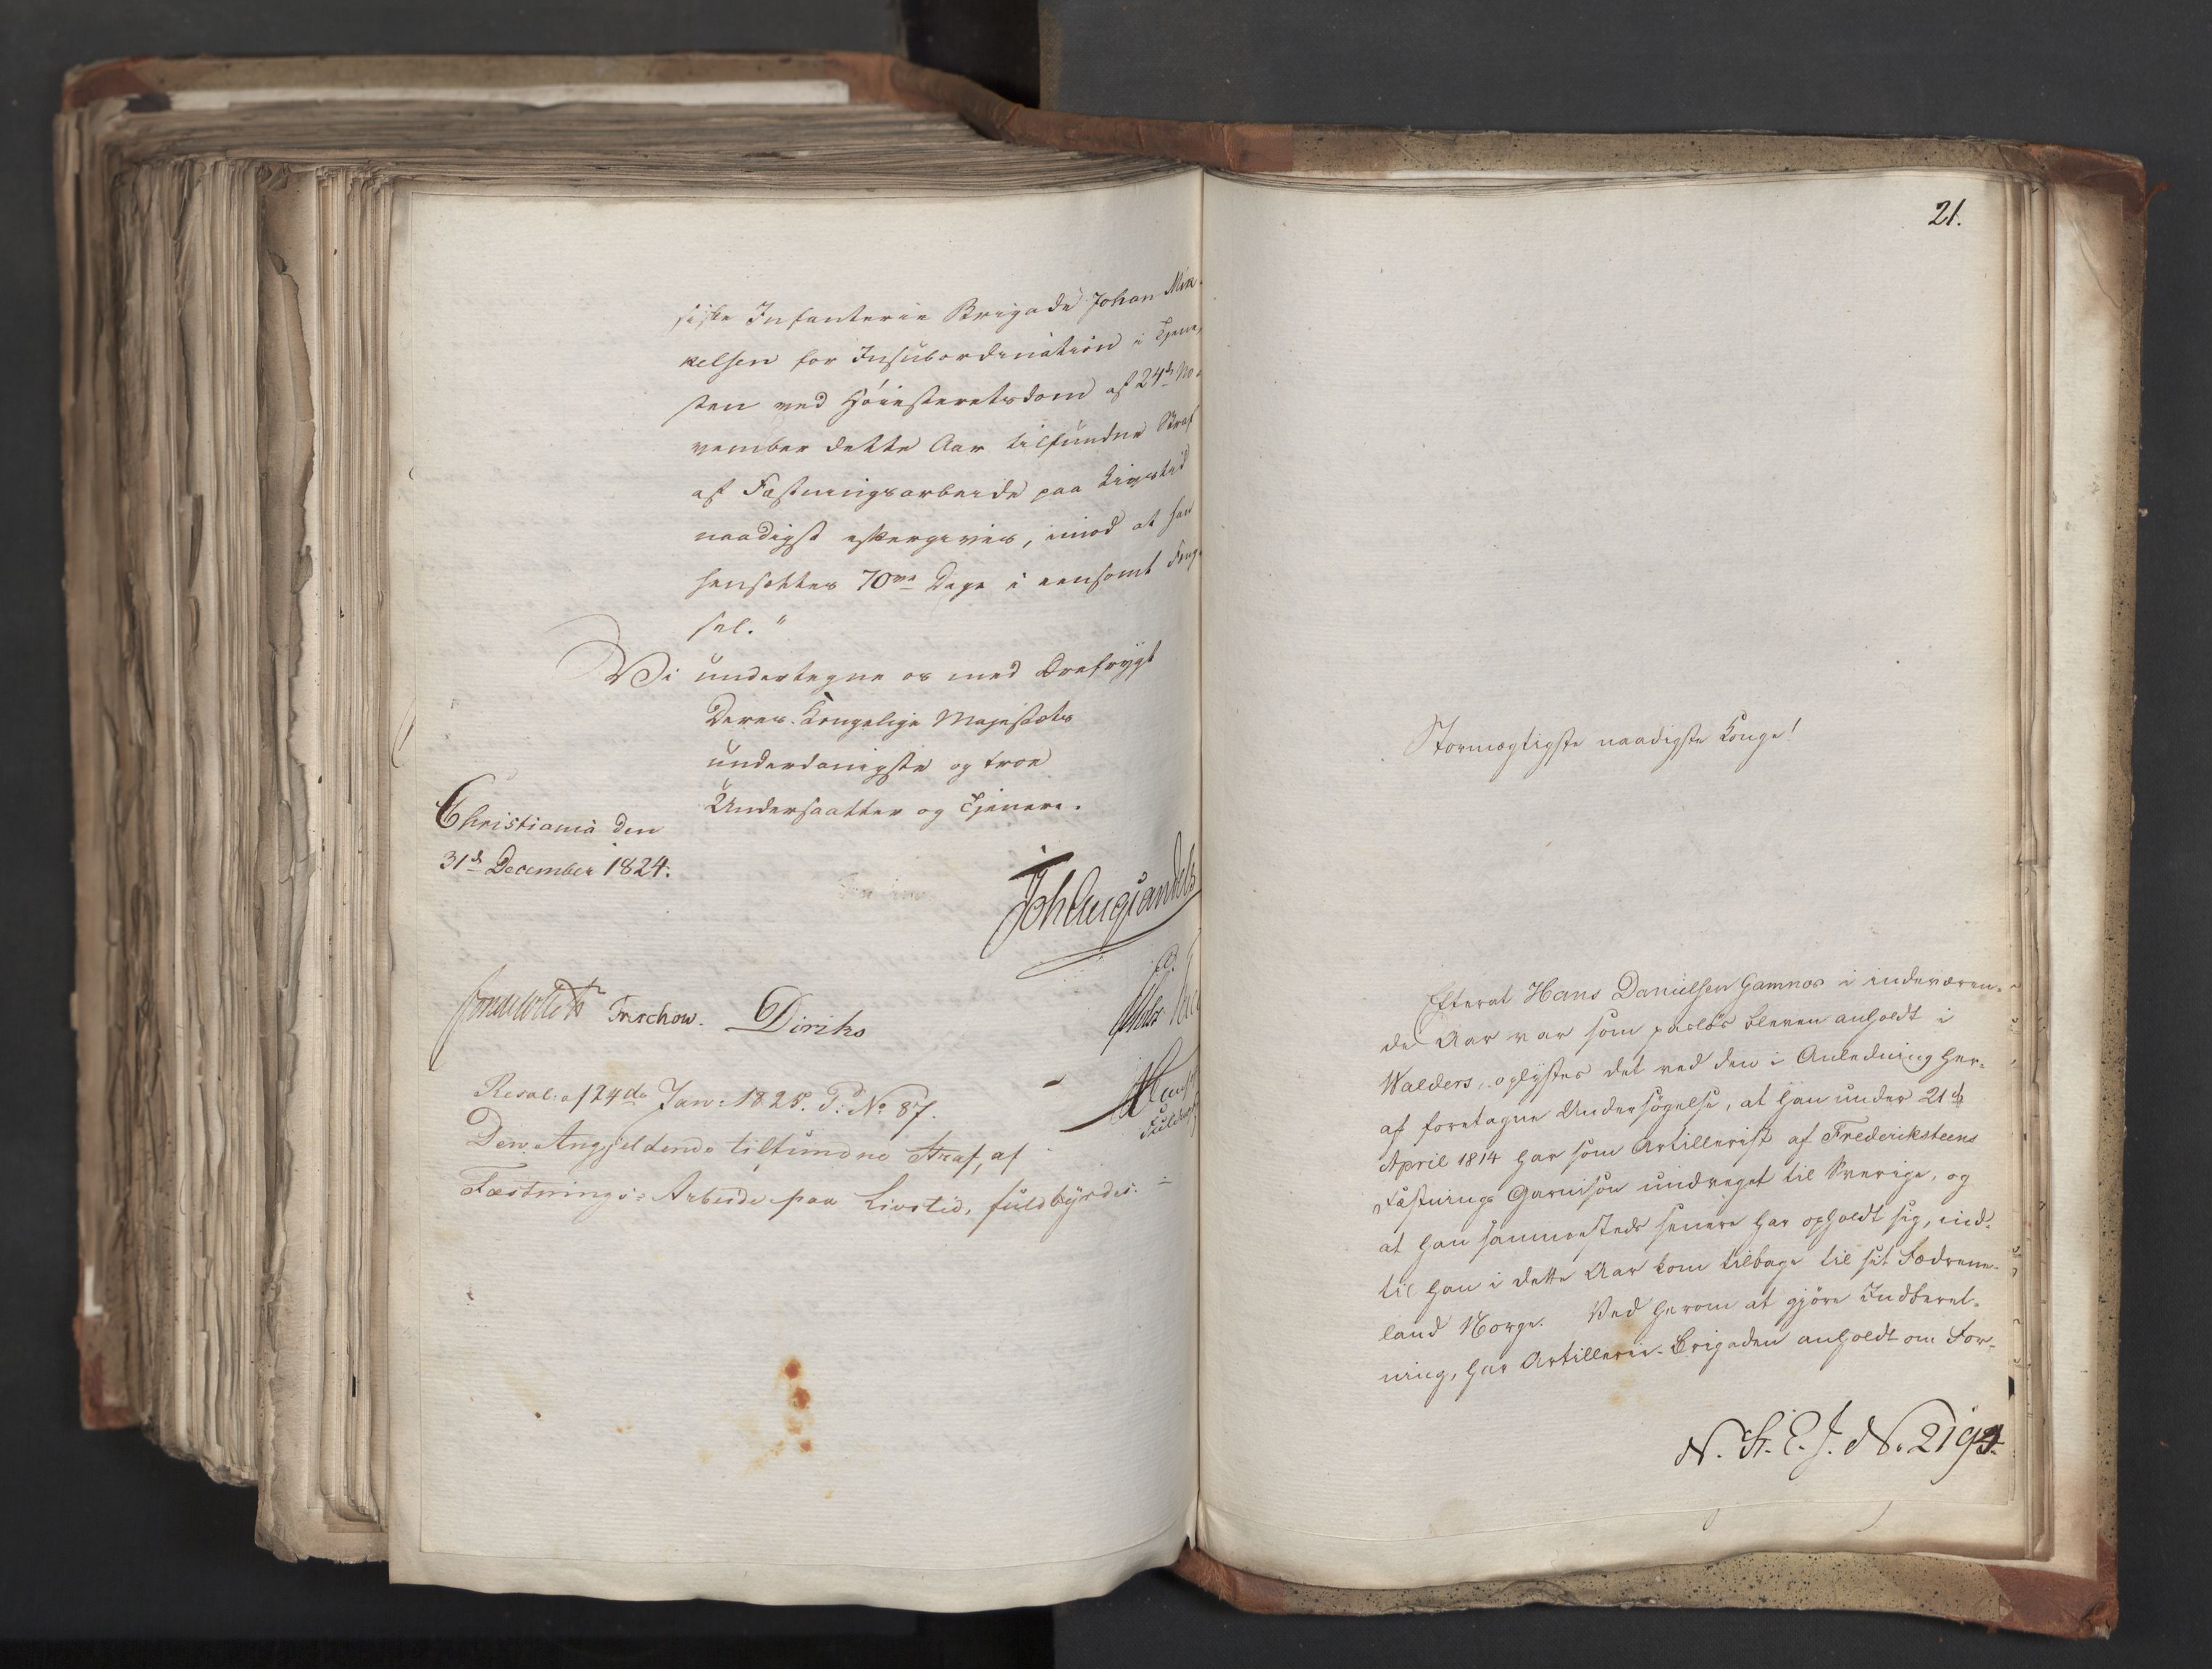 siske Infanterie Brigade Johan Mik-
kelsen for Insubordination i Tjene-
sten ved Høiesteretsdom af 24de No-
vember dette Aar tilfundne Straf
af Fæstningsarbeide paa Livstid
naadigst eftergives, imod at han
hensættes 70ve Dage i eensomt Fæng-
sel."
Vi undertegne os med Ærefrygt
Deres Kongelige Majestæts
underdanigste og troe
Undersaatter og Tjenere.
Christiania den
31d December 1824.
Joh Aug Sandels
Treschow. Diriks
Resol: af 24de Jan: 1825. P: No 87.
Den Angjeldende tilfundne Straf, af
Fæstnings-Arbeide paa Livstid, fuldbyrdes.
21.
Stormægtigste naadigste Konge!
Efterat Hans Danielsen Hamnos i indeværen-
de Aar var som pasløs bleven anholdt i
Walders, oplystes det ved den i Anledning her-
af foretagne Undersøgelse, at han under 21d
April 1814 har som Artillerist af Frederiksteens
Fæstnings Garnison undveget til Sverige, og
at han sammesteds senere har opholdt sig, ind-
til han i dette Aar kom tilbage til sit Fædrene-
land Norge. Ved herom at gjøre Indberet-
ning, har Artillerie-Brigaden anholdt om For-
N. St. E. J. No. 2194.